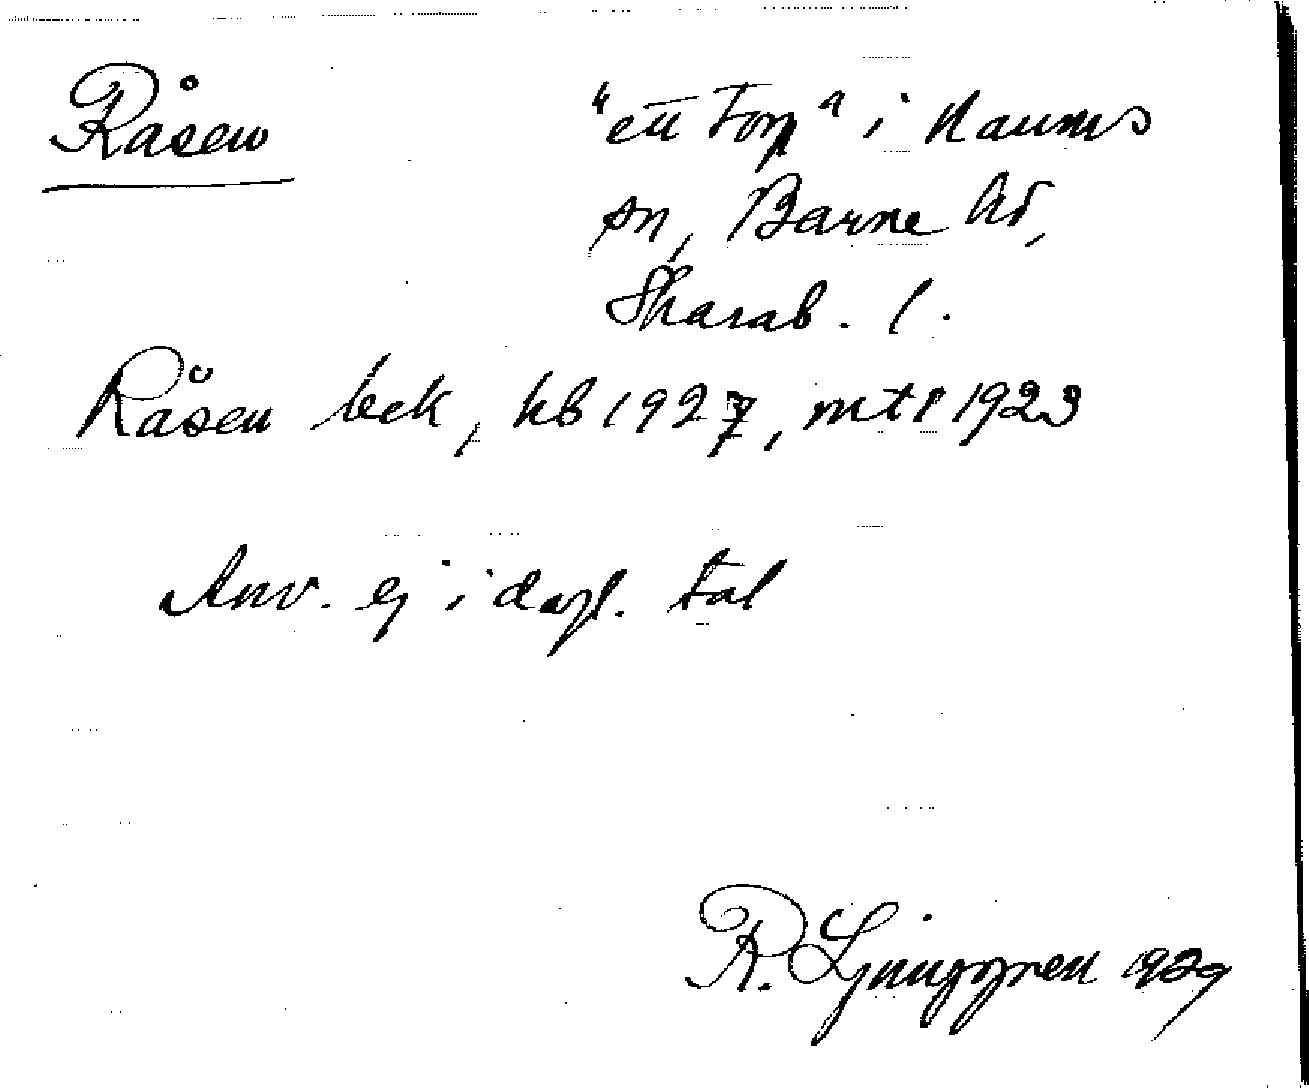 Råsen
"ett torp" i Naums
sn, Barne hd,
Skarab. l.
Råsen bek, kb 1927, mtl 1923
Anv. ej i dagl. tal
R. Ljunggren 1929